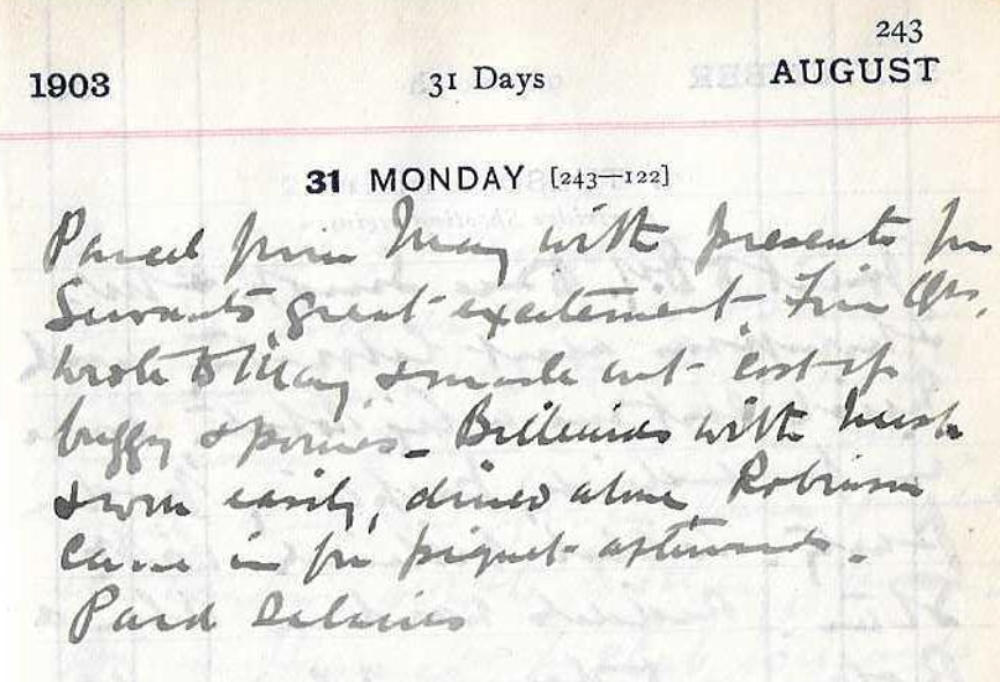 243
1903 31 Days AUGUST
31 MONDAY [243—122]
Parcel from May with presents for
Servants, great excitement. Fine
wrote to May & made out cost of
buggy & ponies – Billiards with
& won easily, dined alone, Robinson
came in for piquet afterwards.
Paid Salaries